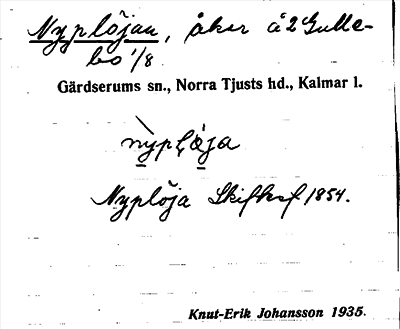 Nyplöjan, åker å 2 Gulle-
bo 1/8
Gärdserums sn., Norra Tjusts hd., Kalmar l.
nyplöja
Nyplöja Skifksf 1854.
Knut-Erik Johansson 1935.